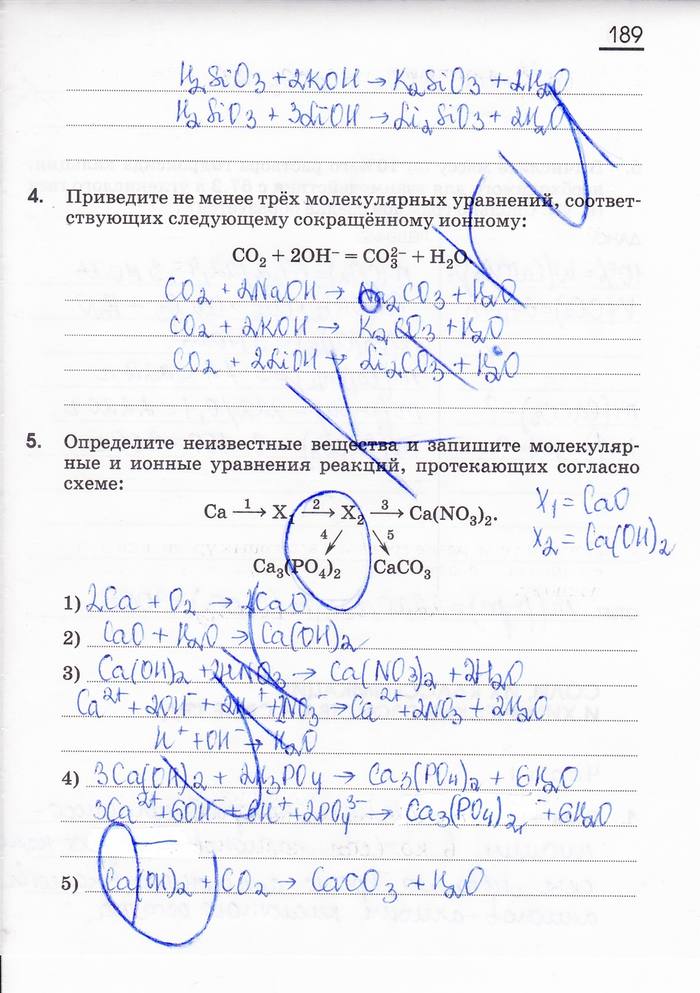 189
H₂SiO₃ + 2KOH → K₂SiO₃ + 2H₂O
H₂SiO₃ + 3LiOH → Li₂SiO₃ + 2H₂O
4. Приведите не менее трёх молекулярных уравнений, соответ-
ствующих следующему сокращённому ионному:
CO₂ + 2OH⁻ = CO₃²⁻ + H₂O.
CO₂ + 2NaOH → Na₂CO₃ + H₂O
CO₂ + 2KOH → K₂CO₃ + H₂O
CO₂ + 2LiOH → Li₂CO₃ + H₂O
5. Определите неизвестные вещества и запишите молекуляр-
ные и ионные уравнения реакций, протекающих согласно
схеме:
Ca →1 X₁ →2 X₂ →3 Ca(NO₃)₂.
4 5
Ca₃(PO₄)₂ CaCO₃
X₁ = CaO
X₂ = Ca(OH)₂
1) 2Ca + O₂ → 2CaO
2) CaO + H₂O → Ca(OH)₂
3) Ca(OH)₂ + 2HNO₃ → Ca(NO₃)₂ + 2H₂O
Ca²⁺ + 2OH⁻ + 2H⁺ + 2NO₃⁻ → Ca²⁺ + 2NO₃⁻ + 2H₂O
H⁺ + OH⁻ → H₂O
4) 3Ca(OH)₂ + 2H₃PO₄ → Ca₃(PO₄)₂ + 6H₂O
3Ca²⁺ + 6OH⁻ + 6H⁺ + 2PO₄³⁻ → Ca₃(PO₄)₂ + 6H₂O
5) Ca(OH)₂ + CO₂ → CaCO₃ + H₂O